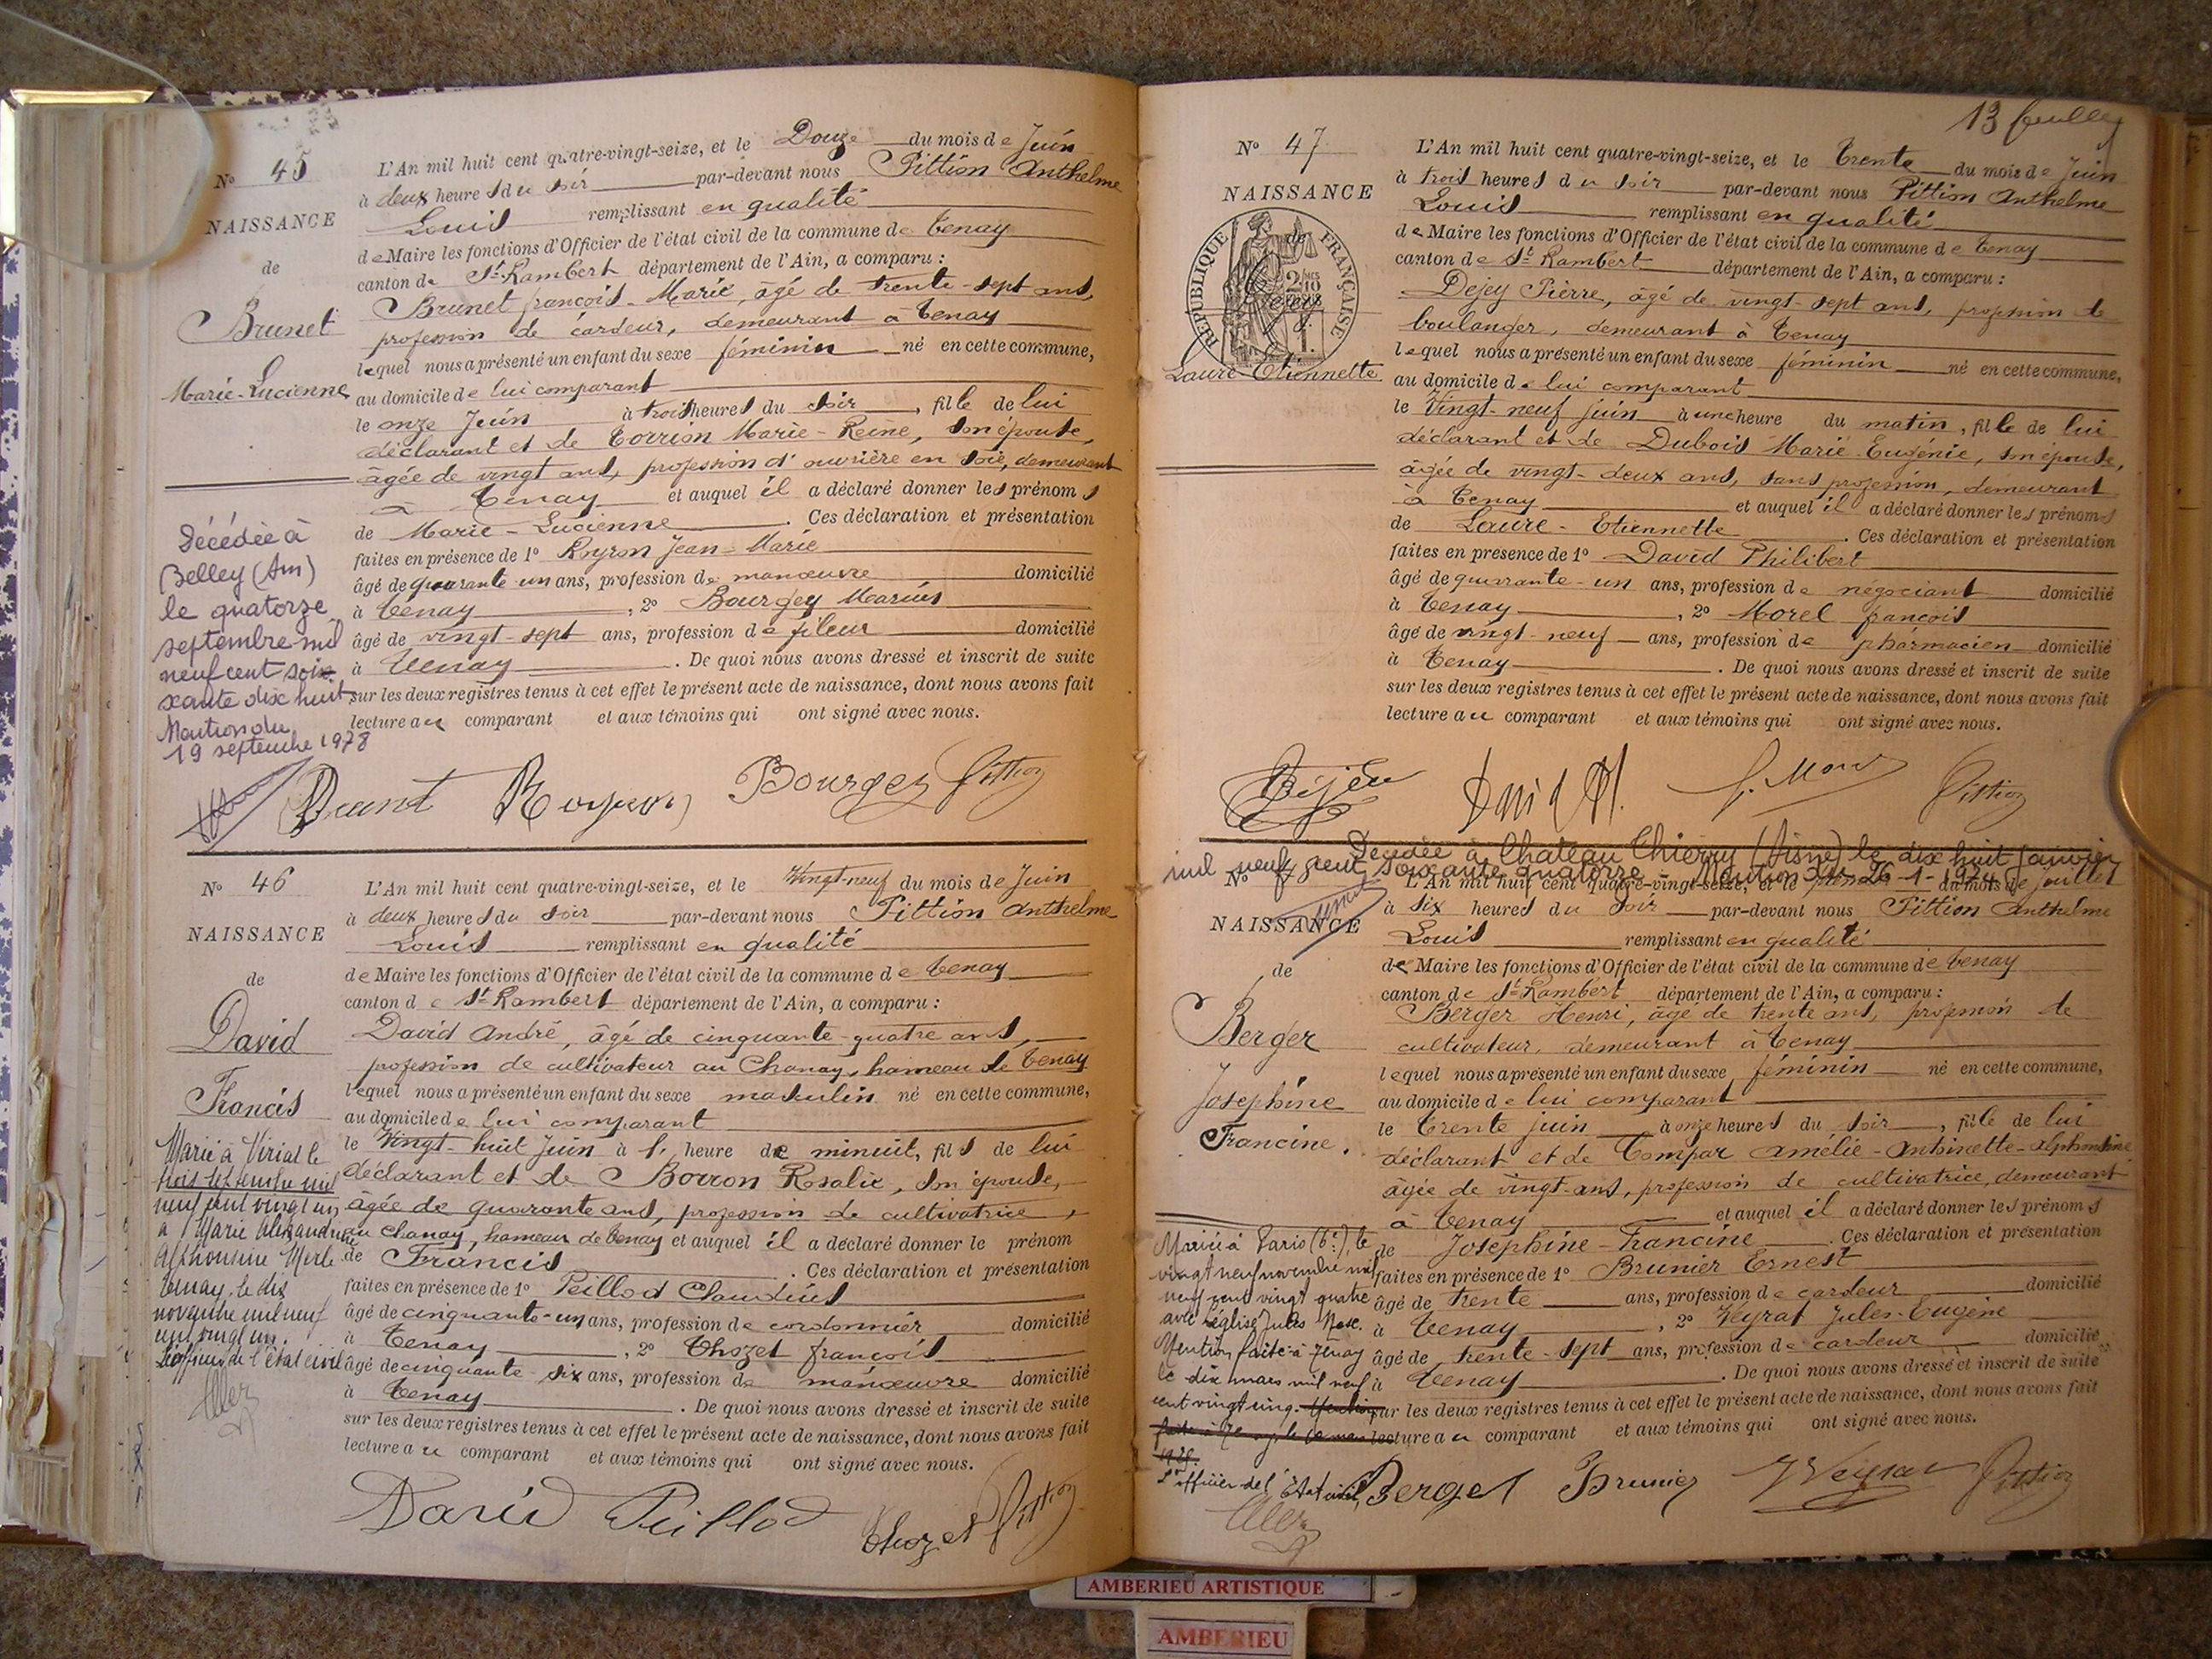 N° 45
NAISSANCE
de
Brunet
Marie-Lucienne
Décédée à
Belley (Ain)
le quatorze
septembre mil
neuf cent soi
xante dix huit
Mention du
19 septembre 1978
L'An mil huit cent quatre-vingt-seize, et le Douze du mois de Juin
à deux heures du soir par-devant nous Pittion Anthelme
Louis remplissant en qualité
de Maire les fonctions d'Officier de l'état civil de la commune de Tenay
canton de St-Rambert département de l'Ain, a comparu :
Brunet françois-Marie, âgé de trente-sept ans,
profession de cardeur, demeurant à Tenay
lequel nous a présenté un enfant du sexe féminin né en cette commune,
au domicile de lui comparant
le onze Juin à trois heures du soir, fille de lui
déclarant et de Torrion Marie-Reine, son épouse,
âgée de vingt ans, profession d'ouvrière en soie, demeurant
à Tenay et auquel il a déclaré donner les prénoms
de Marie-Lucienne. Ces déclaration et présentation
faites en présence de 1° Royron Jean-Marie
âgé de quarante-un ans, profession de manœuvre domicilié
à Tenay, 2° Bourgey Marius
âgé de vingt-sept ans, profession de fileur domicilié
à Tenay. De quoi nous avons dressé et inscrit de suite
sur les deux registres tenus à cet effet le présent acte de naissance, dont nous avons fait
lecture au comparant et aux témoins qui ont signé avec nous.
Brunet Royron Bourgey Pittion
N° 46
NAISSANCE
de
David
Francis
Marié à Viriat le
trois septembre mil
neuf cent vingt un
à Marie Alexandrine
Alphonsine Merle
Tenay, le dix
novembre mil neuf
cent vingt un.
L'officier de l'état civil
L'An mil huit cent quatre-vingt-seize, et le Vingt-neuf du mois de Juin
à deux heures du soir par-devant nous Pittion Anthelme
Louis remplissant en qualité
de Maire les fonctions d'Officier de l'état civil de la commune de Tenay
canton de St-Rambert département de l'Ain, a comparu :
David André, âgé de cinquante-quatre ans,
profession de cultivateur au Chanay, hameau de Tenay
lequel nous a présenté un enfant du sexe masculin né en cette commune,
au domicile de lui comparant
le Vingt-huit Juin à l' heure de minuit, fils de lui
déclarant et de Borron Rosalie, son épouse,
âgée de quarante ans, profession de cultivatrice,
au Chanay, hameau de Tenay et auquel il a déclaré donner le prénom
de Francis. Ces déclaration et présentation
faites en présence de 1° Peillod Claudius
âgé de cinquante-un ans, profession de cordonnier domicilié
à Tenay, 2° Thozet françois
âgé de cinquante-six ans, profession de manœuvre domicilié
à Tenay. De quoi nous avons dressé et inscrit de suite
sur les deux registres tenus à cet effet le présent acte de naissance, dont nous avons fait
lecture au comparant et aux témoins qui ont signé avec nous.
David Peillod Thozet Pittion
13
N° 47
NAISSANCE
de
RÉPUBLIQUE FRANÇAISE
Dejey
Laure Etiennette
L'An mil huit cent quatre-vingt-seize, et le trente du mois de Juin
à trois heures du soir par-devant nous Pittion Anthelme
Louis remplissant en qualité
de Maire les fonctions d'Officier de l'état civil de la commune de Tenay
canton de St-Rambert département de l'Ain, a comparu :
Dejey Pierre, âgé de vingt-sept ans, profession de
boulanger, demeurant à Tenay
lequel nous a présenté un enfant du sexe féminin né en cette commune,
au domicile de lui comparant
le Vingt-neuf juin à une heure du matin, fille de lui
déclarant et de Dubois Marie-Eugénie, son épouse,
âgée de vingt-deux ans, sans profession, demeurant
à Tenay et auquel il a déclaré donner les prénoms
de Laure-Etiennette. Ces déclaration et présentation
faites en présence de 1° David Philibert
âgé de quarante-un ans, profession de négociant domicilié
à Tenay, 2° Morel françois
âgé de vingt-neuf ans, profession de pharmacien domicilié
à Tenay. De quoi nous avons dressé et inscrit de suite
sur les deux registres tenus à cet effet le présent acte de naissance, dont nous avons fait
lecture au comparant et aux témoins qui ont signé avec nous.
Pittion
Décédée à Chateau Thierry (Aisne) le dix huit janvier
mil neuf cent soixante quatorze. Mention du 26-1-1974
N°
NAISSANCE
de
Berger
Joséphine
Francine.
Marié à Paris (6e), le
vingt neuf novembre mil
neuf cent vingt quatre
avec Réglise Jules
Mention faite à Tenay
le dix mars mil neuf
cent vingt cinq.
L'officier de l'État civil,
L'An mil huit cent quatre-vingt-seize, et le premier du mois de juillet
à six heures du soir par-devant nous Pittion Anthelme
Louis remplissant en qualité
de Maire les fonctions d'Officier de l'état civil de la commune de Tenay
canton de St-Rambert département de l'Ain, a comparu :
Berger Henri, âgé de trente ans, profession de
cultivateur, demeurant à Tenay
lequel nous a présenté un enfant du sexe féminin né en cette commune,
au domicile de lui comparant
le trente juin à onze heures du soir, fille de lui
déclarant et de Compar Amélie-Antoinette-Alphonsine
âgée de vingt-ans, profession de cultivatrice, demeurant
à Tenay et auquel il a déclaré donner les prénoms
de Joséphine-Francine. Ces déclaration et présentation
faites en présence de 1° Brunier Ernest
âgé de trente ans, profession de cardeur domicilié
à Tenay, 2° Veyrat Jules-Eugène
âgé de trente-sept ans, profession de cardeur domicilié
à Tenay. De quoi nous avons dressé et inscrit de suite
sur les deux registres tenus à cet effet le présent acte de naissance, dont nous avons fait
lecture au comparant et aux témoins qui ont signé avec nous.
Berger Brunier Veyrat Pittion
AMBERIEU ARTISTIQUE
AMBERIEU